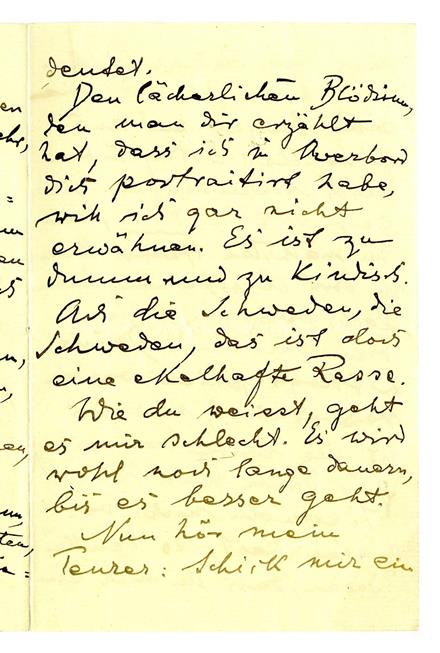 en
deutet.
Den lächerlichen Blödsinn,
den man dir erzählt
hat, dass ich in Överbord
dich portraitirt habe,
will ich gar nicht
erwähnen. Es ist zu
dumm und zu kindisch.
Ach die Schweden, die
Schweden, das ist doch
eine ekelhafte Rasse.
Wie du weisst, geht
es mir schlecht. Es wird
wohl noch lange dauern,
bis es besser geht.
Nun hör mein
Teurer: Schick mir ein